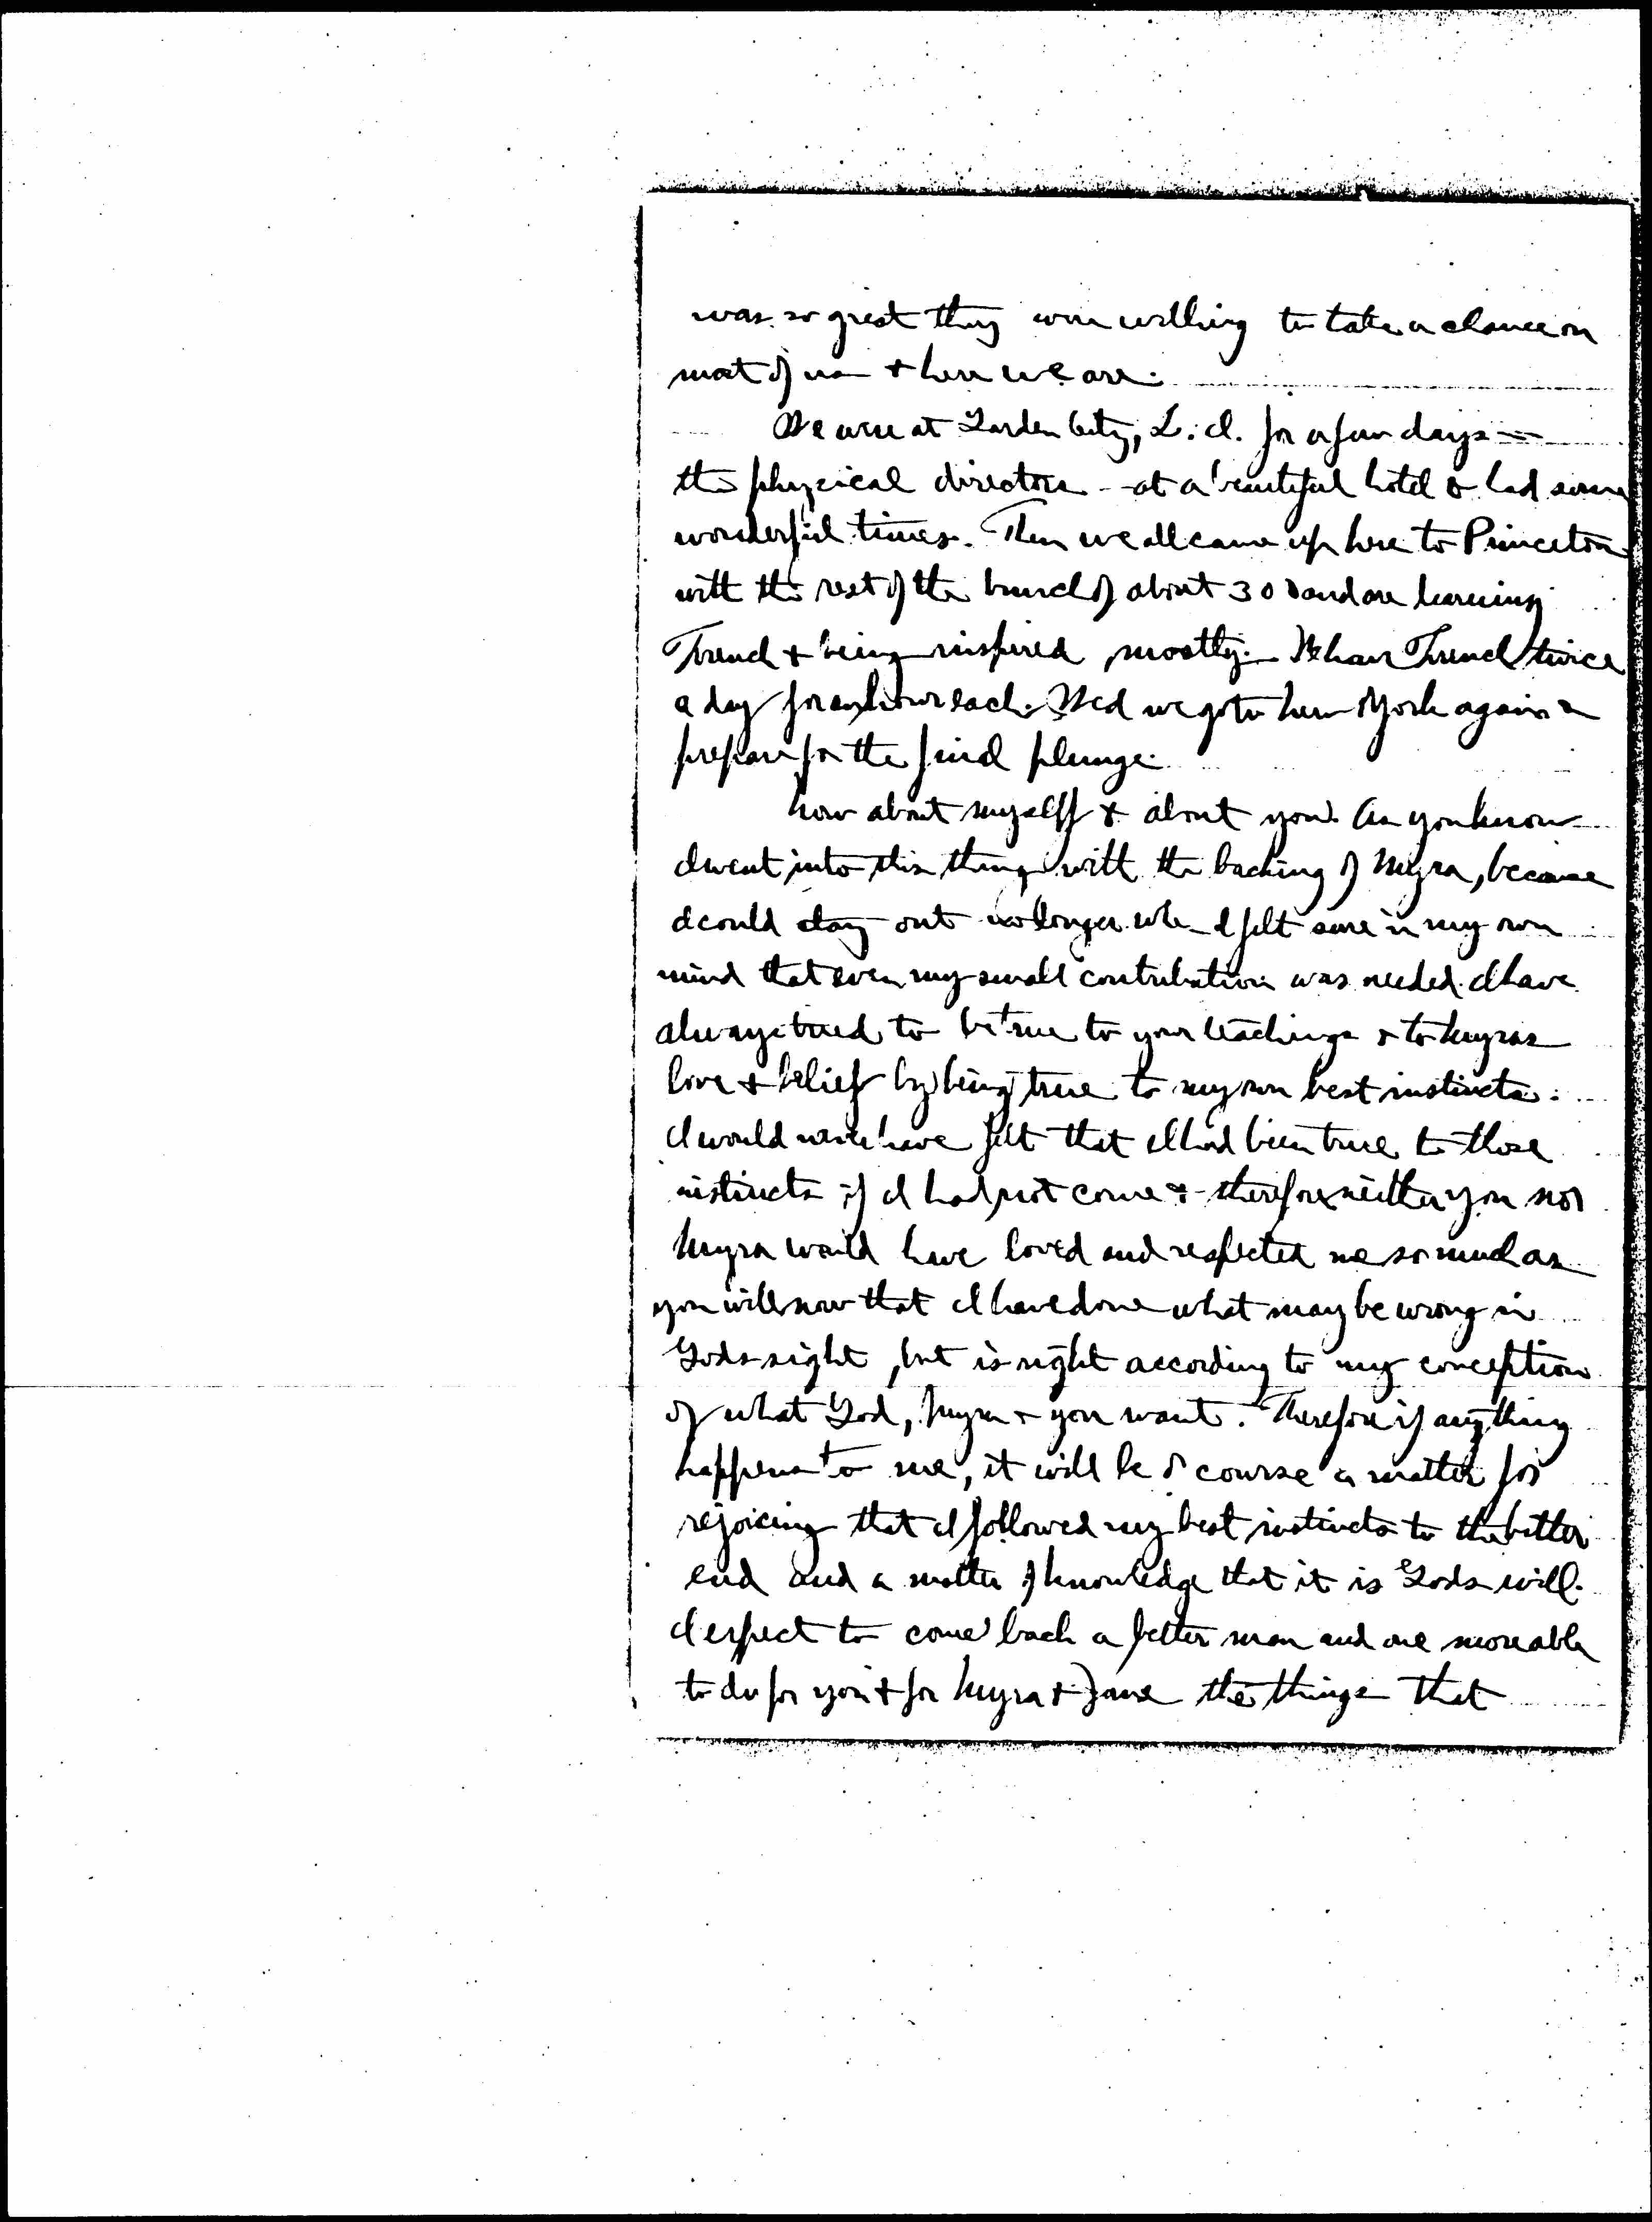 was so great they were willing to take a chance on
most of us + here we are.
We were at Garden City, L.I. for a few days —
the physical directors - at a beautiful hotel & had some
wonderful times. Then we all came up here to Princeton
with the rest of the bunch of about 300 and are learning
French + being inspired, mostly. We have French twice
a day for an hour each. Wed we go to New York again &
prepare for the final plunge.
Now about myself + about you. As you know
I went into this thing with the backing of Myra, because
I could stay out no longer when I felt sure in my own
mind that even my small contribution was needed. I have
always tried to be true to your teachings + to Myras
love + belief by being true to my own best instincts.
I would never have felt that I had been true to those
instincts if I had not come + therefore neither you nor
Myra would have loved and respected me so much as
you will now that I have done what may be wrong in
Gods sight, but is right according to my conception
of what God, Myra + you want. Therefore if anything
happens to me, it will be of course a matter for
rejoicing that I followed my best instincts to the bitter
end and a matter of knowledge that it is Gods will.
I expect to come back a better man and one more able
to do for you + for Myra + Jane the things that